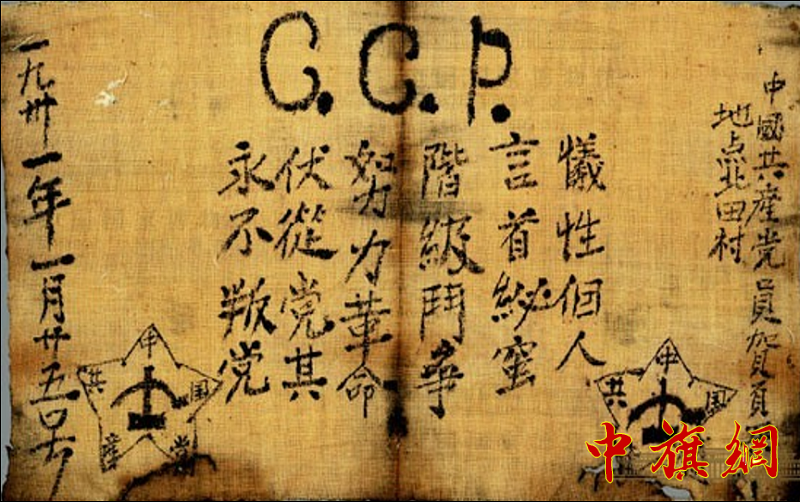 C.C.P.
中國共産党員賀頁
地点北田村
犧性個人
言首秘蜜
階級鬥争
努力革命
伏從党其
永不叛党
一九卅一年一月廿五号
中国共産党
中国共
中旗網